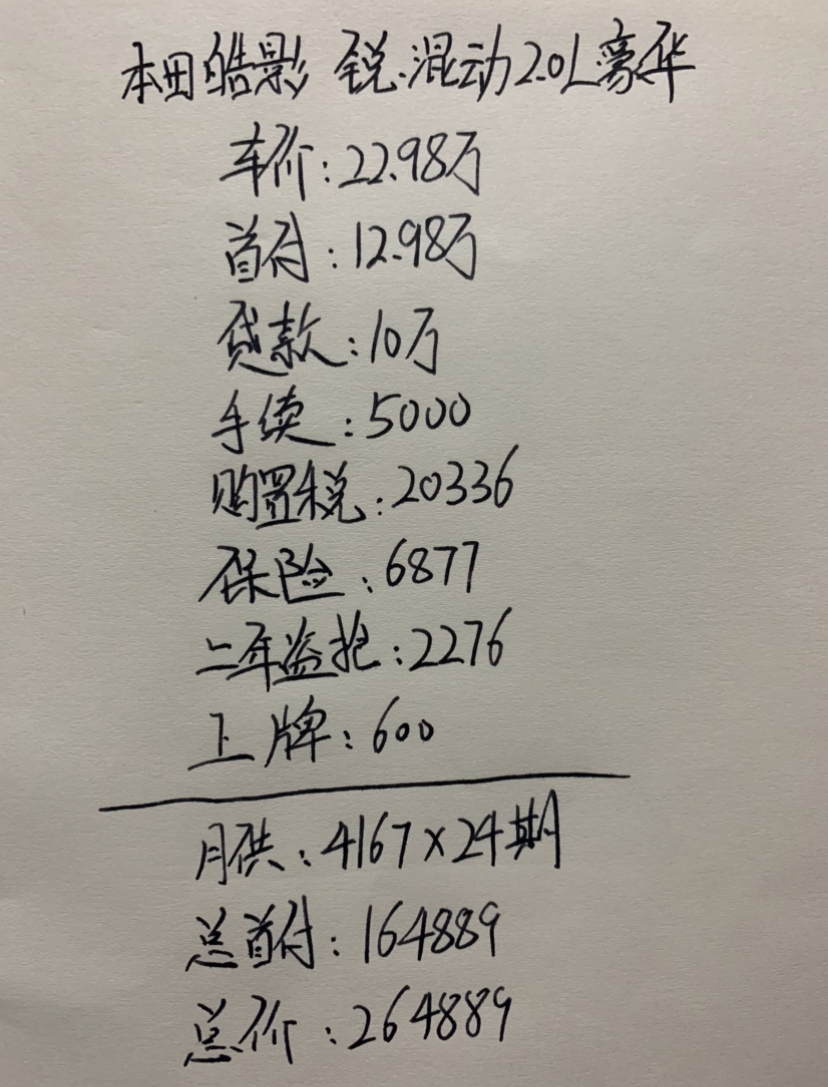 本田皓影 锐·混动2.0L豪华
车价:22.98万
首付:12.98万
贷款:10万
手续:5000
购置税:20336
保险:6877
二年盗抢:2276
上牌:600
月供:4167×24期
总首付:164889
总价:264889